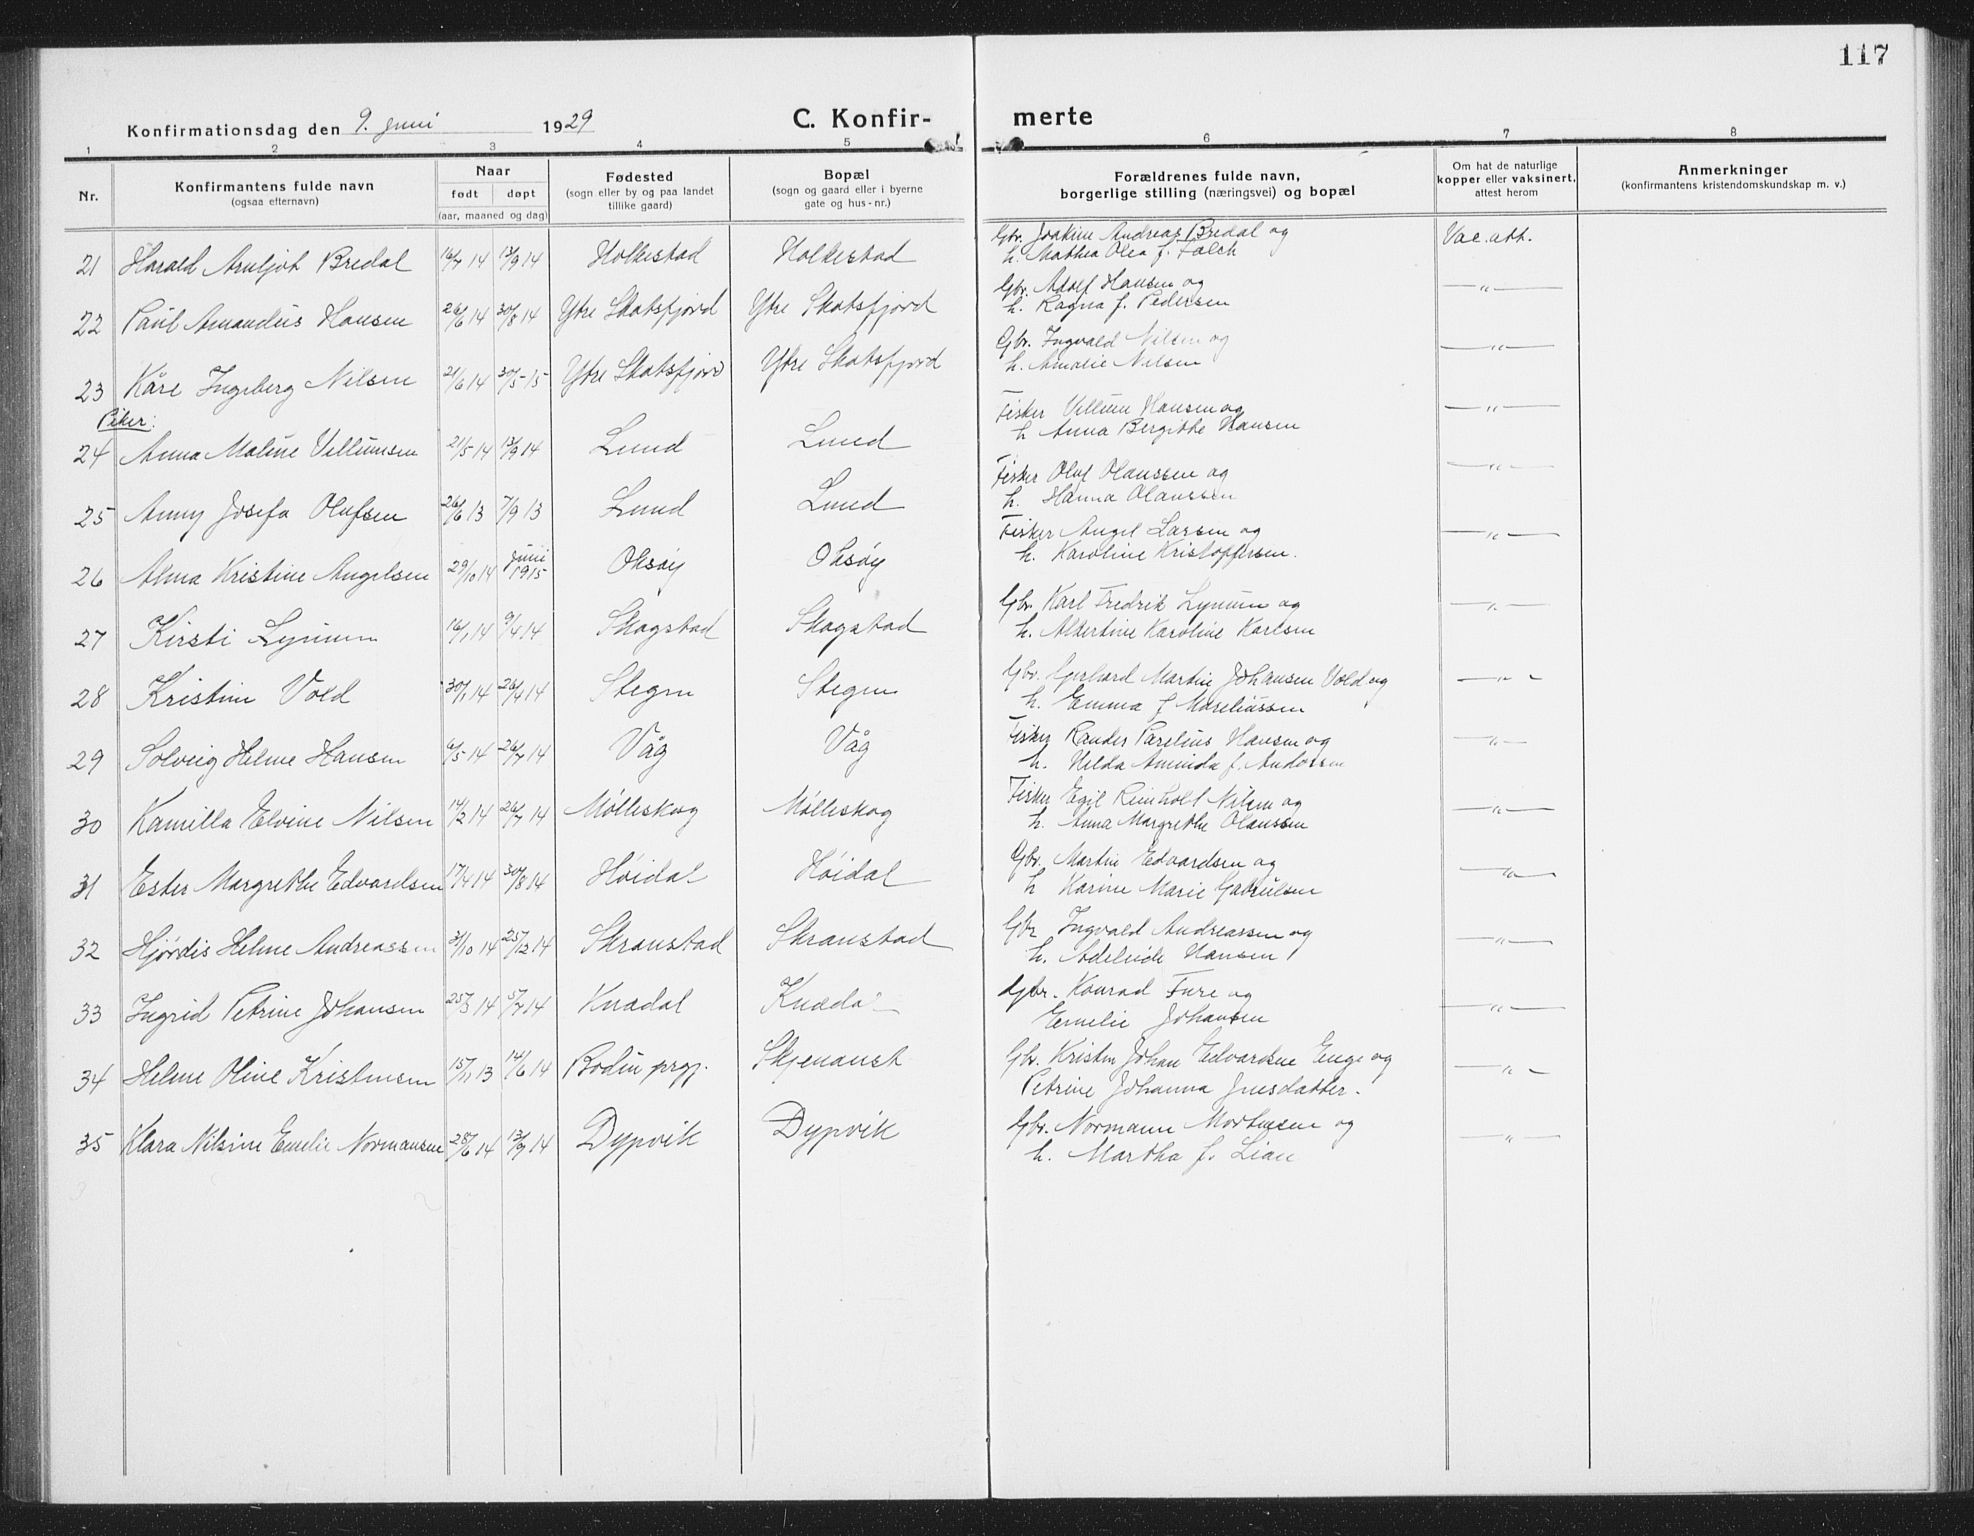 117
Konfirmationsdag den 9. juni 1929 C. Konfir- merte
1 2 3 4 5 6 7 8
Nr. Konfirmantens fulde navn (ogsaa efternavn) Naar født døpt (aar, maaned og dag) Fødested (sogn eller by og paa landet tillike gaard) Bopæl (sogn og gaard eller i byerne gate og hus-nr.) Forældrenes fulde navn, borgerlige stilling (næringsvei) og bopæl Om hat de naturlige kopper eller vaksinert, attest herom Anmerkninger (konfirmantens kristendomskundskap m. v.)
21 Harald Arnljot Bredal 16/7 14 13/9 14 Holkestad Holkestad Gbr. Joakim Andreas Bredal og
h. Mathea Olea f. Falch Vac. att.
22 Paul Amandus Hansen 26/6 14 30/8 14 Ytre Skotsfjord Ytre Skotsfjord Gbr. Adolf Hansen og
h. Ragna f. Pedersen —"—
23 Kåre Ingeberg Nilsen 21/6 14 30/5-15 Ytre Skotsfjord Ytre Skotsfjord Gbr. Ingvald Nilsen og
h. Amalie Nilsen —"—
Piker:
24 Anna Maline Villumsen 21/5 14 13/9 14 Lund Lund Fisker Villum Hansen og
h Anna Bergitte Hansen —"—
25 Anny Josefa Olufsen 26/6 13 7/9 13 Lund Lund Fisker Oluf Olaussen og
h. Hanna Olaussen —"—
26 Alma Kristine Angelsen 29/10 14 Juni 1915 Oksøy Oksøy Fisker Angel Larsen og
h. Karoline Kristoffersen. —"—
27 Kirsti Lynum 16/1 14 9/4 14 Skogstad Skogstad Gbr. Karl Fredrik Lynum og
h. Albertine Karoline Karlsen —"—
28 Kristine Vold 30/1 14 26/4 14 Stegen Stegen Gbr. Gerhard Martin Johansen Vold og
h. Emma f Mareliussen —"—
29 Solveig Helene Hansen 6/5 14 26/7 14 Våg Våg Fisker Rander Parelius Hansen og
h. Hilda Aminda f. Andersen —"—
30 Kamilla Elvine Nilsen 14/2 14 26/7 14 Mølleskog Mølleskog Fisker Egil Reinholt Nilsen og
h. Anna Margrethe Olaussen —"—
31 Ester Margrethe Edvardsen 17/4 14 30/8 14 Høidal Høidal Gbr. Martin Edvardsen og
h Karine Marie Gabrielsen —"—
32 Hjørdis Helene Andreassen 3/10 14 25/12 14 Skranstad Skranstad Gbr Ingvald Andreassen og
h. Adeleide Hansen —"—
33 Ingrid Petrine Johansen 25/3 14 5/7 14 Knædal Knædal Gbr. Konrad Fure og
Emelie Johansen —"—
34 Helene Oline Kristensen 15/11 13 14/6 14 Bodin prgj. Skjenanst Gbr. Kristen Johan Edvardsen Enge og
Petrine Johanna Jensdatter. —"—
35 Klara Nilsine Emelie Normansen 28/6 14 13/9 14 Dypvik Dypvik Gbr. Normann Mortensen og
h. Martha f. Lian —"—